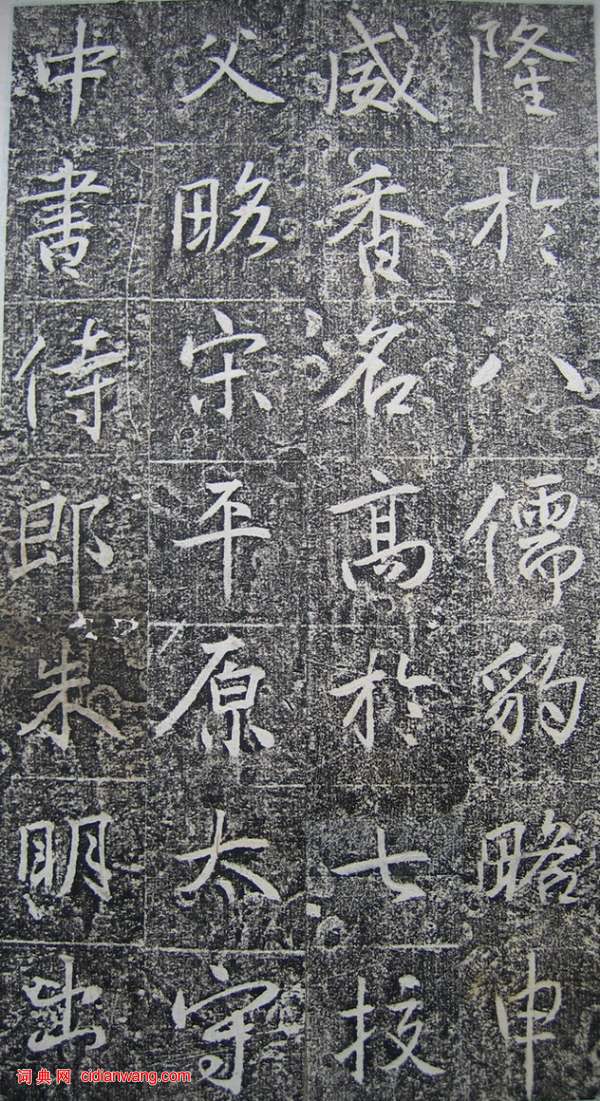 隆於八儒豹略申
威香名高於七校
父略宋平原太守
中書侍郎朱明出
词典网 cidianwang.com